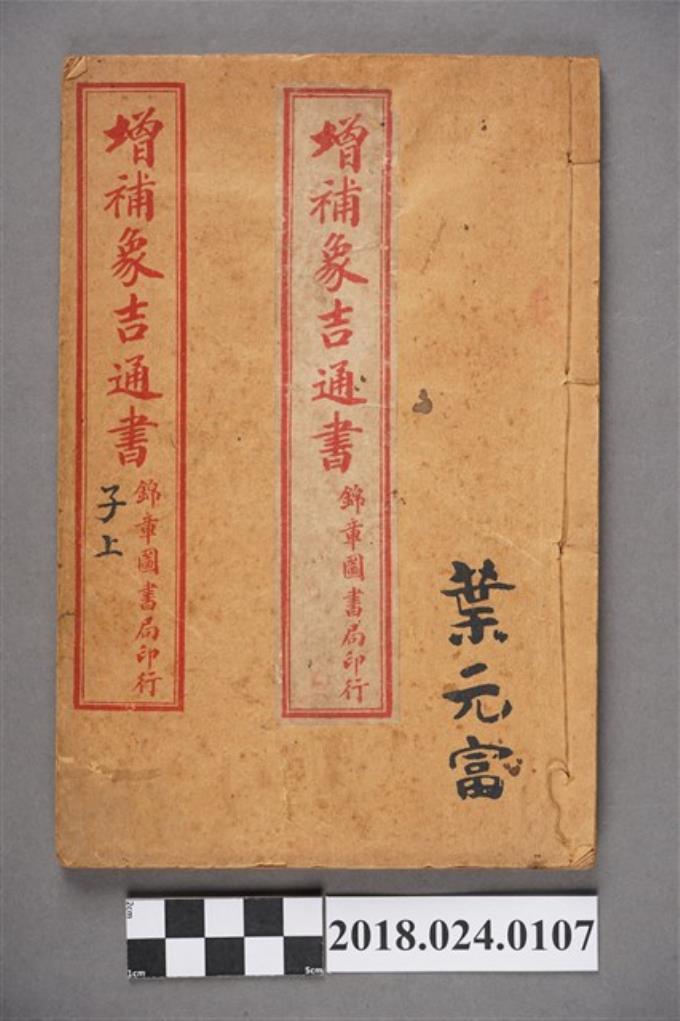 葉元富
增補象吉通書
錦章圖書局印行
增補象吉通書
錦章圖書局印行
子上
2cm
1cm
5cm
2018.024.0107